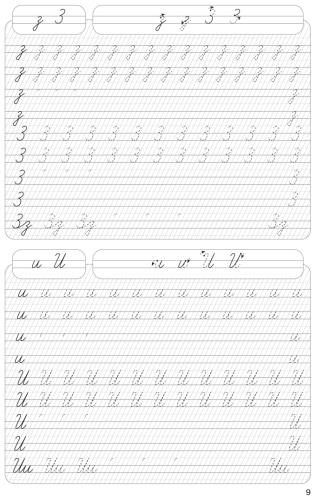 з З з з З З
з з з з з з з з з з з з з з з
з з з з з з з з з з з з з з з
з з
з з
З З З З З З З З З З З З З
З З З З З З З З З З З З З
З З
З З
Зз Зз Зз Зз
и И и и И И
и и и и и и и и и и и и
и и и и и и и и и и и и
и и
и и
И И И И И И И И И И И И И
И И И И И И И И И И И И И
И И
И И
Ии Ии Ии Ии
9